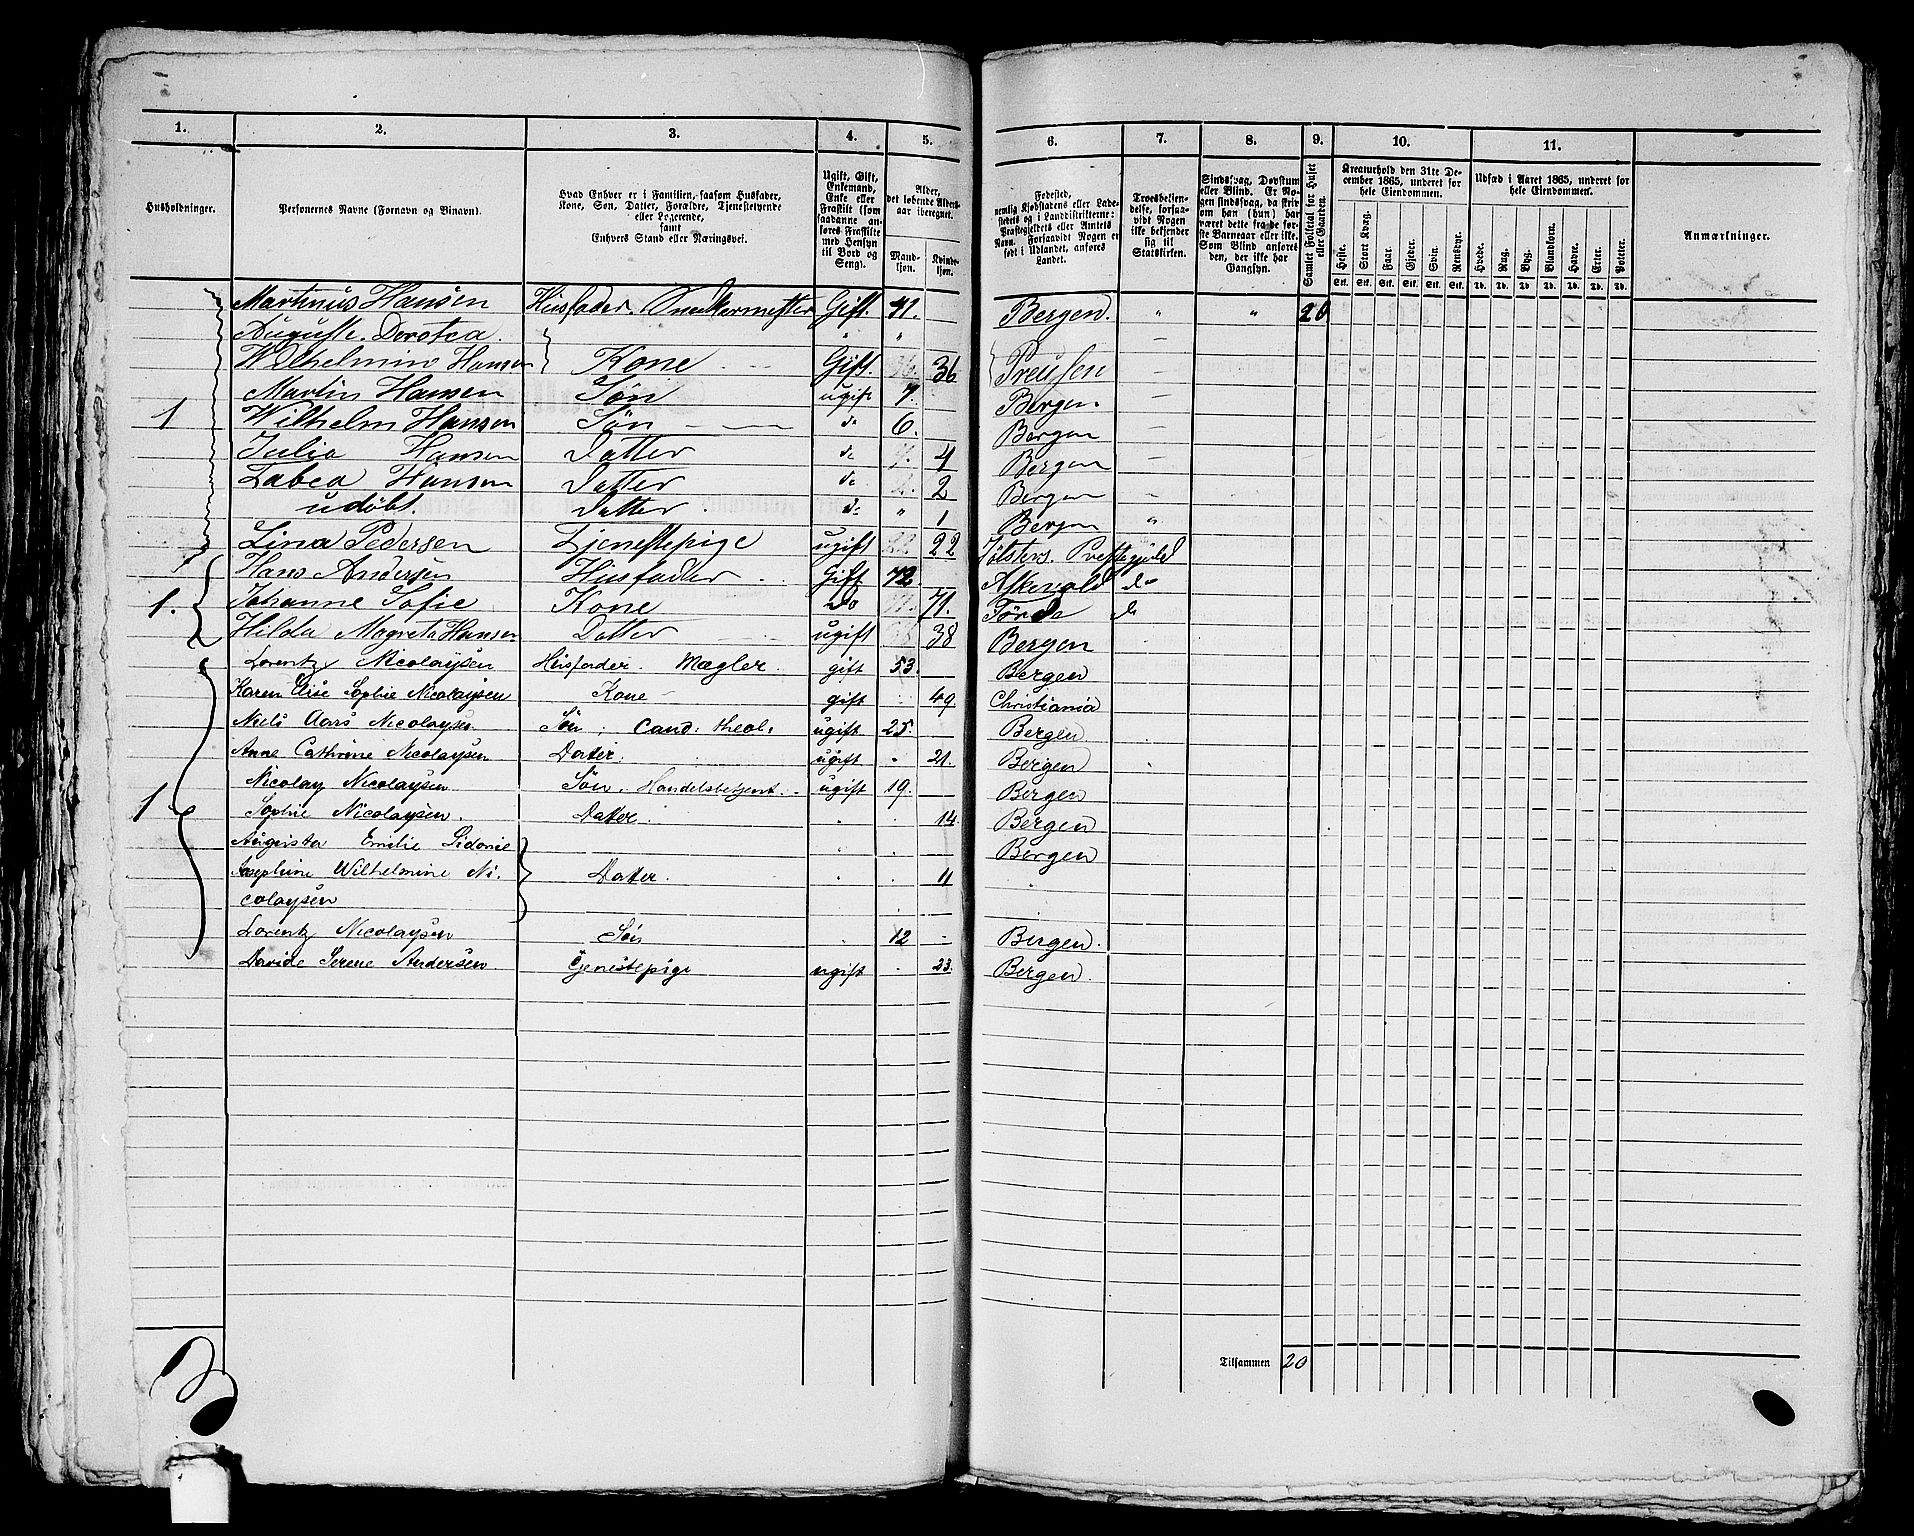 1. 2. 3. 4. 5. 6. 7. 8. 9. 10. 11.
Husholdninger.
Personernes Navne (Fornavn og Binavn).
Hvad Enhver er i Familien, saasom Husfader,
Kone, Søn, Datter, Forældre, Tjenestetyende
eller Logerende,
samt
Enhvers Stand eller Næringsvei.
Ugift, Gift,
Enkemand,
Enke eller
Fraskilt (som
saadanne an-
føres Fraskilte
med Hensyn
til Bord og
Seng).
Alder,
det løbende Alders-
aar iberegnet.
Mand-
kjøn.
Kvinde-
kjøn.
Fødested,
nemlig Kjøbstadens eller Lade-
stedets og i Landdistrikterne:
Præstegjeldets eller Amtets
Navn. Forsaavidt Nogen er
født i Udlandet, anføres
Landet.
Troesbekjen-
delse, forsaa-
vidt Nogen
ikke bekjender
sig til
Statskirken.
Sindssvag, Døvstum
eller Blind. Er No-
gen sindssvag, da skriv
om han (hun) har
været dette fra de før-
ste Barneaar eller ikke.
Som Blind anføres
den, der ikke har
Gangsyn.
Samlet Folketal for Huset
eller Gaarden.
Kreaturhold den 31te De-
cember 1865, underet for
hele Eiendommen.
Heste. Stort Kvæg. Faar. Gjeder. Svin. Rensdyr.
Stk. Stk. Stk. Stk. Stk. Stk.
Udsæd i Aaret 1865, underet for
hele Eiendommen.
Hvede. Rug. Byg. Blandkorn. Havre. Erter. Poteter.
Td. Td. Td. Td. Td. Td. Td.
Anmærkninger.
Martinus Hansen Husfader. Snedkermester Gift. 41. Bergen. " " 20
Auguste. Dorotea
Wilhelmine Hansen Kone Gift. 36 Preusen
Martin Hansen Søn ugift 7. Bergen.
1 Wilhelm Hansen Søn do 6. Bergen
Julia Hansen Datter do 4 Bergen
Labea Hansen Datter do 2 Bergen
udøbt. Datter. do " 1 Bergen "
Lina Pedersen Tjenestepige ugift 22 Jølsters. Prestegjeld
Hans Andersen Husfader Gift 72. Askevold do
1. Johanne Sofie Kone do 71. Førde do
Hilda Magreta Hansen Datter ugift 38 Bergen
Lorentz Nicolaysen Husfader. Mægler. gift 53. Bergen
Karen Elise Sophie Nicolaysen Kone gift 49 Christiania
Niels Aars Nicolaysen Søn; Cand: theol. ugift 25. Bergen
Anne Cathrine Nicolaysen Dater; ugift 21. Bergen
Nicolay Nicolaysen Søn. Handelsbetjent. ugift 19. Bergen
1 Sophie Nicolaysen. Dater. 14. Bergen
Augusta Emilie Sidonie Bergen
Josephine Wilhelmine Ni- Dater. 11
colaysen
Lorentz Nicolaysen Søn 12 Bergen.
Davide Serene Andersen. Tjenestepige ugift 23. Bergen.
Tilsammen 20
3